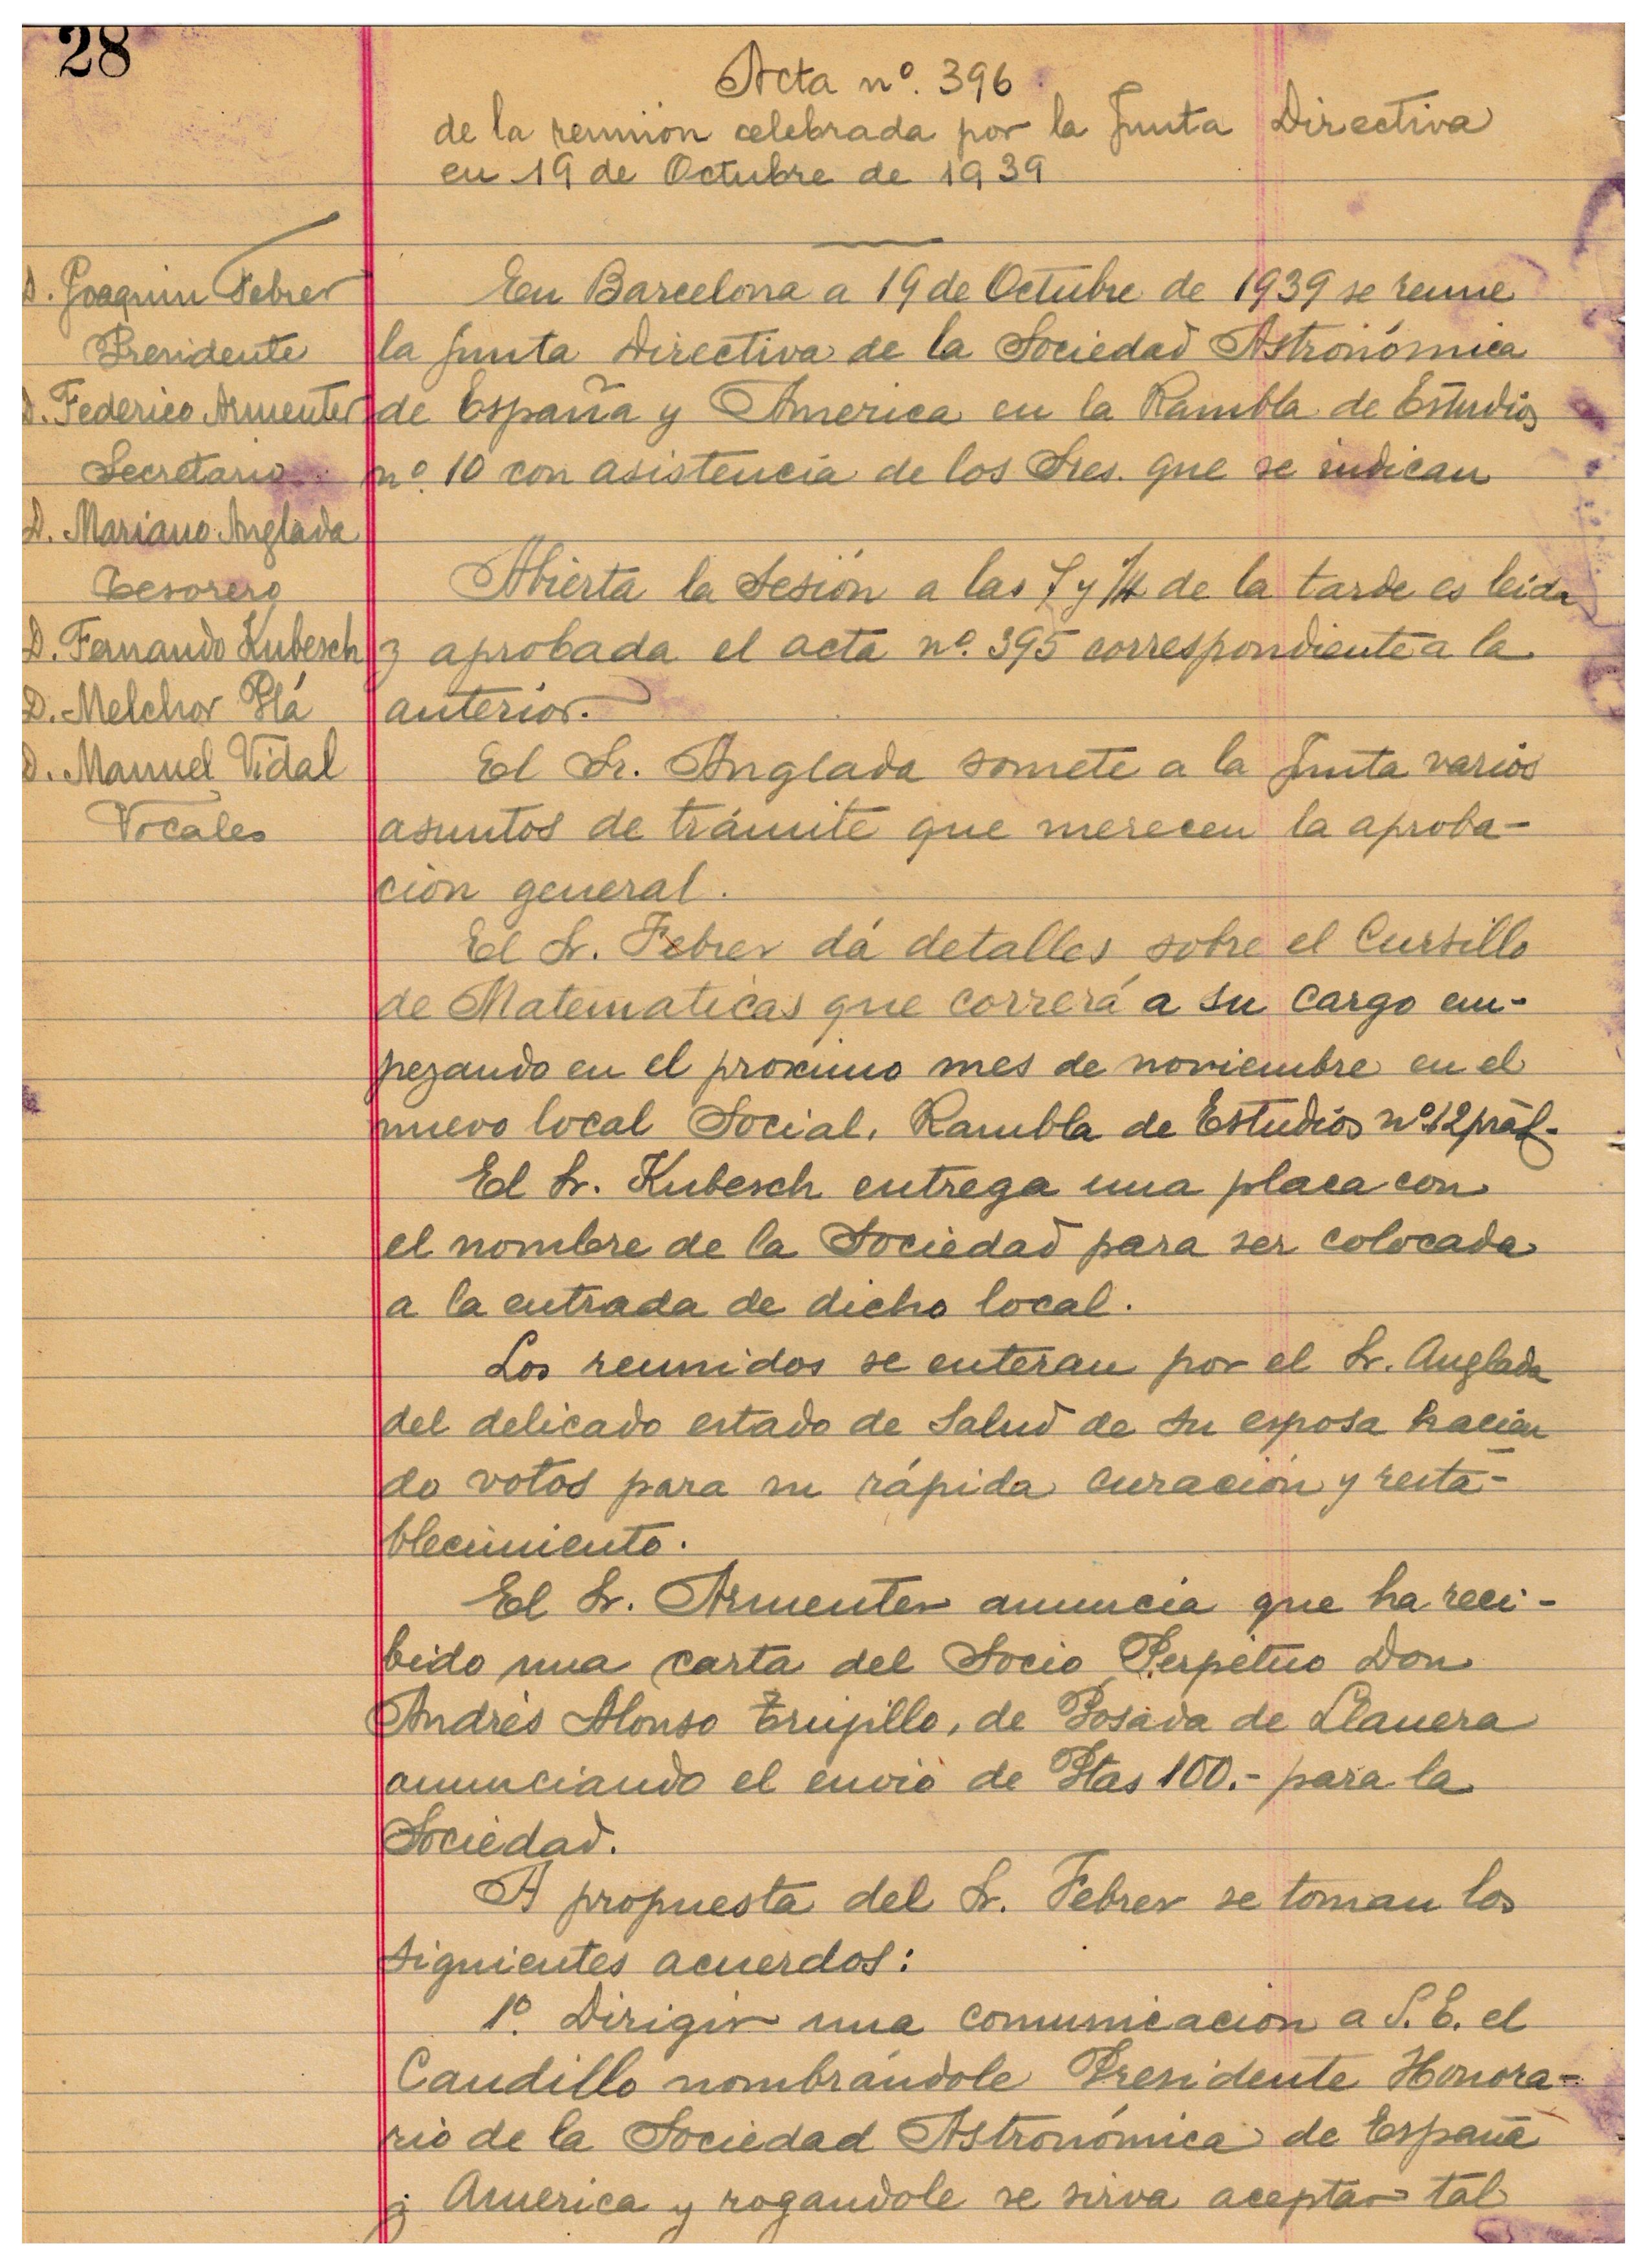 28
Acta nº. 396
de la reunión celebrada por la Junta Directiva
en 19 de Octubre de 1939
D. Joaquin Febrer
Presidente
D. Federico Armenter
Secretario
D. Mariano Anglada
Tesorero
D. Fernando Kubesch
D. Melchor Plá
D. Manuel Vidal
Vocales
En Barcelona a 19 de Octubre de 1939 se reune
la Junta Directiva de la Sociedad Astronómica
de España y America en la Rambla de Estudios
nº. 10 con asistencia de los Sres. que se indican
Abierta la Sesión a las 7 y 1/4 de la tarde es leida
y aprobada el acta nº. 395 correspondiente a la
anterior.
El Sr. Anglada somete a la Junta varios
asuntos de trámite que merecen la aproba-
ción general.
El Sr. Febrer dá detalles sobre el Cursillo
de Matematicas que correrá a su cargo em-
pezando en el proximo mes de noviembre en el
nuevo local Social, Rambla de Estudios nº 12 pral.
El Sr. Kubesch entrega una placa con
el nombre de la Sociedad para ser colocada
a la entrada de dicho local.
Los reunidos se enteran por el Sr. Anglada
del delicado estado de salud de su esposa hacien
do votos para su rápida curación y resta-
blecimiento.
El Sr. Armenter anuncia que ha reci-
bido una carta del Socio Perpetuo Don
Andrés Alonso Trujillo, de Posada de Llanera
anunciando el envio de Ptas 100.- para la
Sociedad.
A propuesta del Sr. Febrer se toman los
siguientes acuerdos:
1º. Dirigir una comunicacion a S. E. el
Caudillo nombrándole Presidente Honora-
rio de la Sociedad Astronómica de España
y America y rogandole se sirva aceptar tal